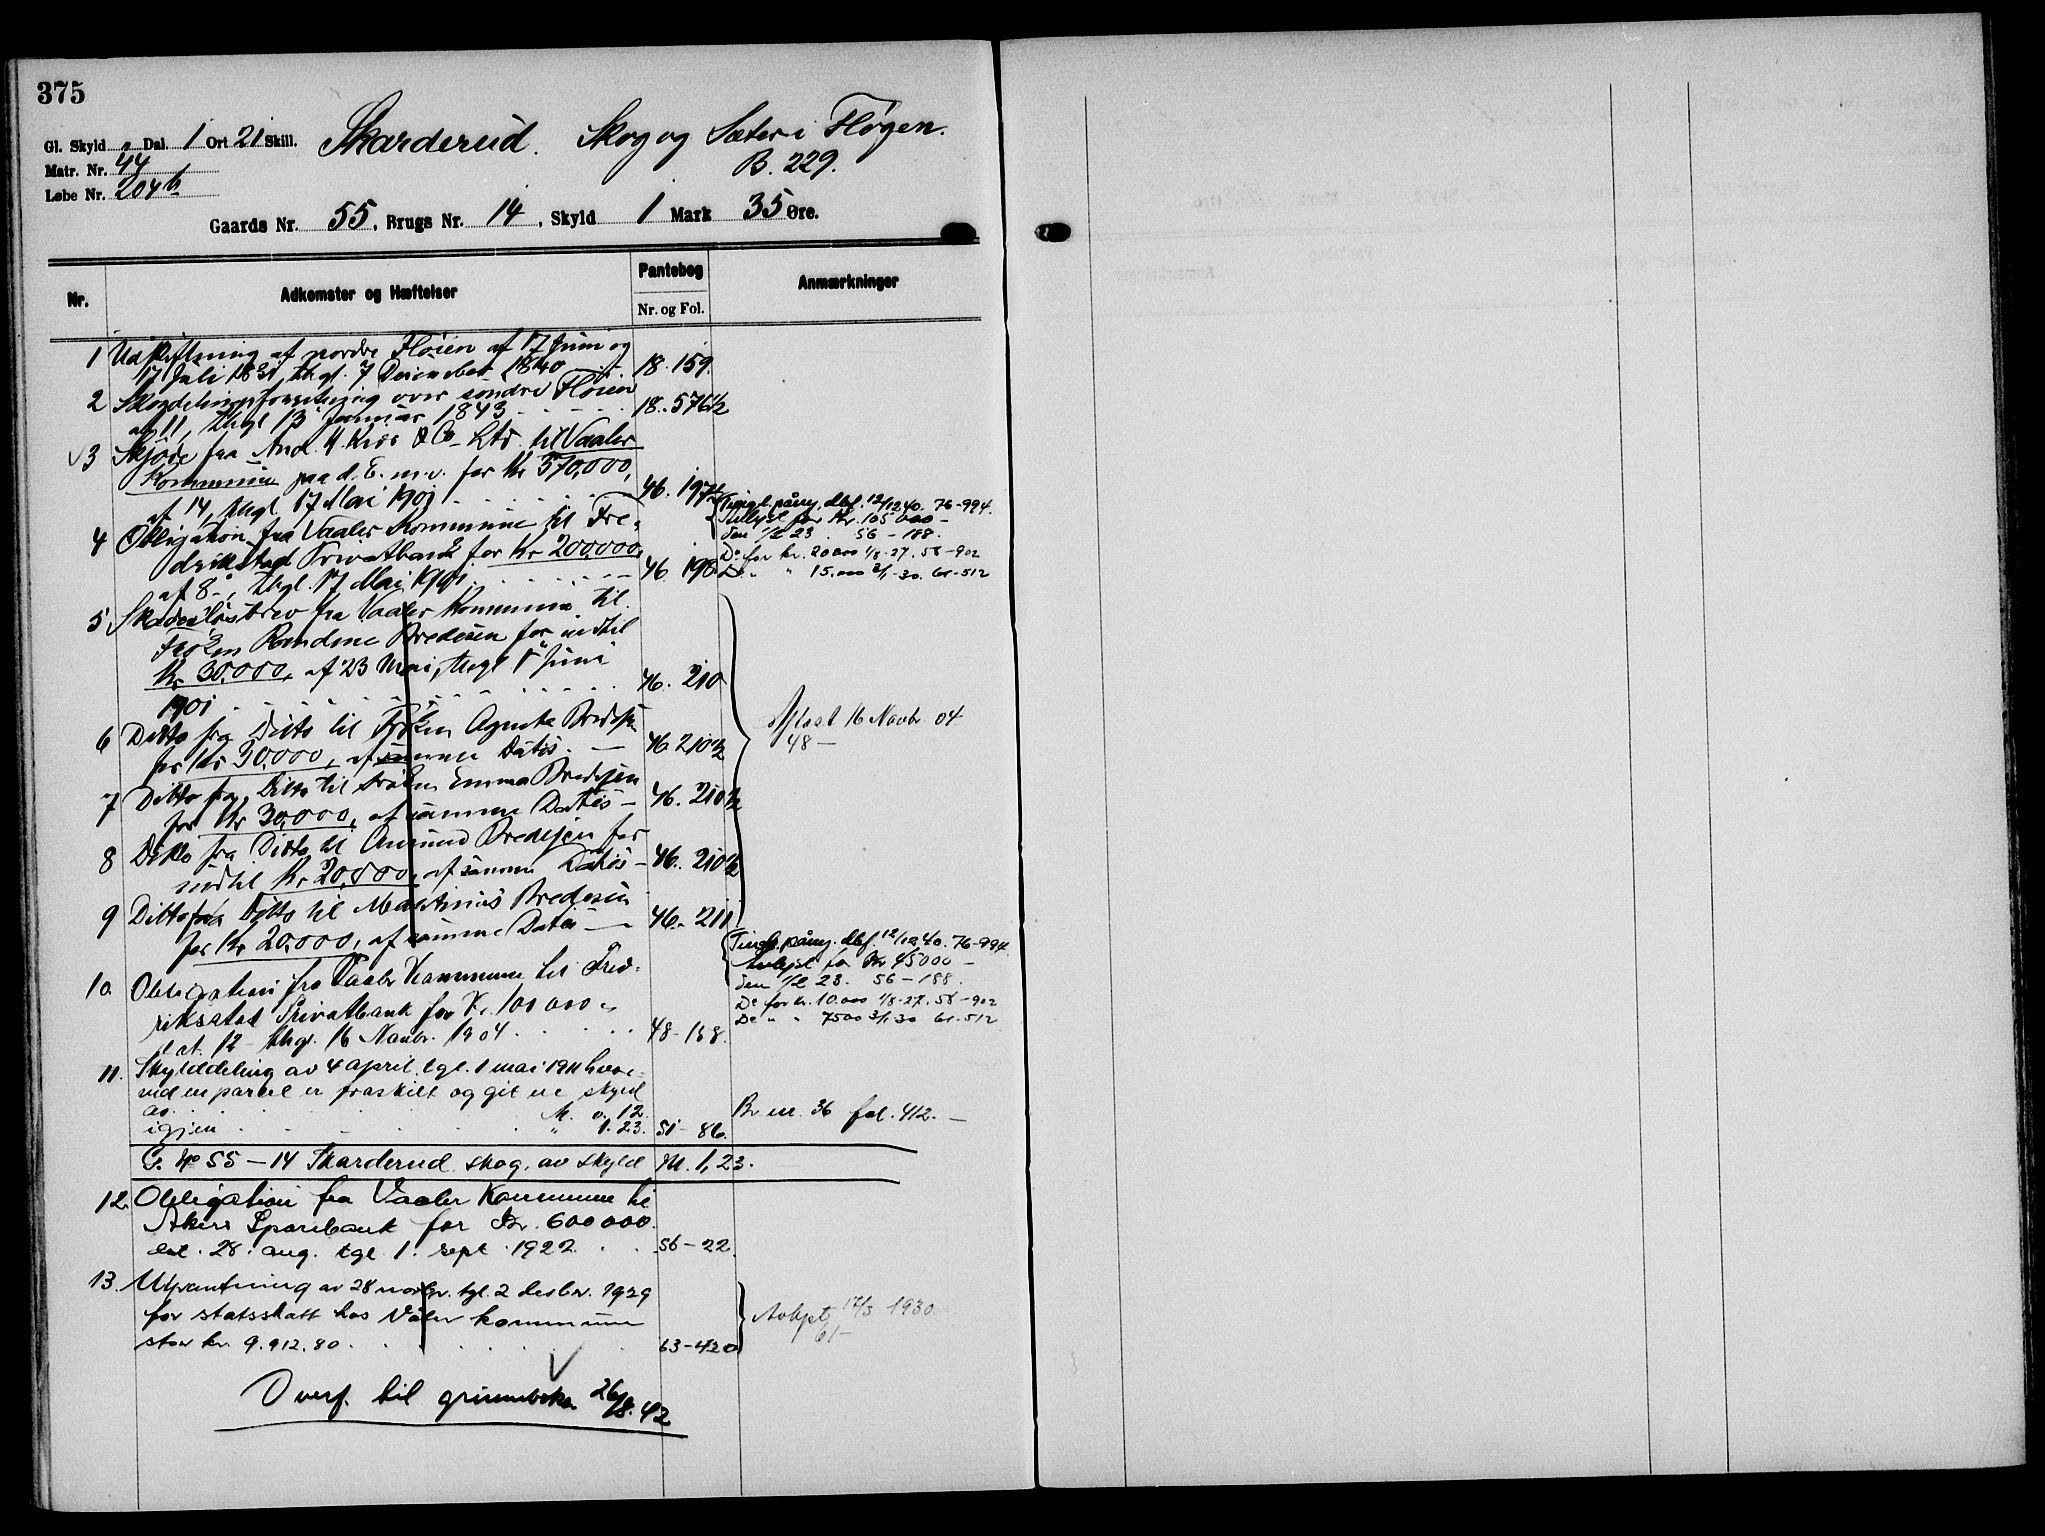 375
Gl. Skyld „ Dal. 1 Ort 21 Skill. Skarderud. Skog og Sæter i Fløgen.
Matr. Nr. 44 B. 229.
Løbe Nr. 204b
Gaards Nr. 55, Brugs Nr. 14, Skyld 1 Mark 35 Øre.
Nr. Adkomster og Hæftelser Pantebog Nr. og Fol. Anmærkninger
1 Udskiftning af nordre Fløien af 17 Juni og
17 Juli 1831 thgl. 7 December 1840 18. 159.
2 Skovdelingsforretning over søndre Fløien
af 11, thgl 13 Januar 1843 18. 576½
3 Skjøde fra And. H. Kiær & Co Ltd. til Vaaler
Kommune paa d. E. m. v. for Kr 570,000,
af 14, thgl 17 Mai 1901 46. 197
4 Obligation fra Vaaler Kommune til Fre-
drikstad Privatbank for Kr 200,000,
af 8-, thgl. 17 Mai 1901 46. 198
Tingl. påny. dbf. 12/12 40. 76-994.
Avlyst for Kr. 105 000 -
den 1/2 23. 56 - 188.
Do for kr. 20 000 1/8-27. 58-902
Do " " 15.000 3/1-30. 61-512
5 Skadesløsbrev fra Vaaler Kommune til
Frøken Randine Bredesen for indtil
Kr 30,000, af 23 Mai, thgl 1 Juni
1901 46. 210
6 Ditto fra Ditto til Frøken Agnete Bredesen
for Kr 30,000, af samme Datis. — 46 210½
7 Ditto fra Ditto til Frøken Emma Bredesen
for Kr 30,000, af samme Datis — 46. 210½
8 Ditto fra Ditto til Amund Bredesen for
indtil Kr 20,000, af samme Datis — 46. 210½
9 Ditto fra Ditto til Martinus Bredesen
for Kr 20,000, af samme Datis — 46. 211
Aflæst 16 Novbr. 04
48 —
10. Obligation fra Vaaler Kommune til Fred-
rikstad Privatbank for Kr. 100 000 „
dat. 12 thgl. 16 Novbr. 1904 48-158.
Tingl. påny. dbf. 12/12 40. 76-994.
Avlyst for Kr 45000 —
den 1/2 23. 56 - 188.
Do for kr. 10.000 1/8-27. 58-902
Do " " 7500 3/1-30 61-512
11. Skylddeling av 4 april, tgl. 1 mai 1911 hvor-
ved en parcel er fraskilt og git en skyld
av M. 0.12.
igjen " 1.23. 51- 86. Br nr. 36 fol. 412. —
G. No 55 - 14 Skarderud skog, av skyld M. 1,23.
12. Obligation fra Vaaler Kommune til
Akers Sparebank for Kr. 600 000.
dat. 28. aug. tgl. 1. sept. 1922 56-22.
13. Utpantning av 28 novbr. tgl. 2 desbr. 1929
for statsskatt hos Våler kommune
stor kr. 9.912.80. 63-420
Avlyst 17/3 1930.
61-
Overf. til grunnboken 26/8. 42